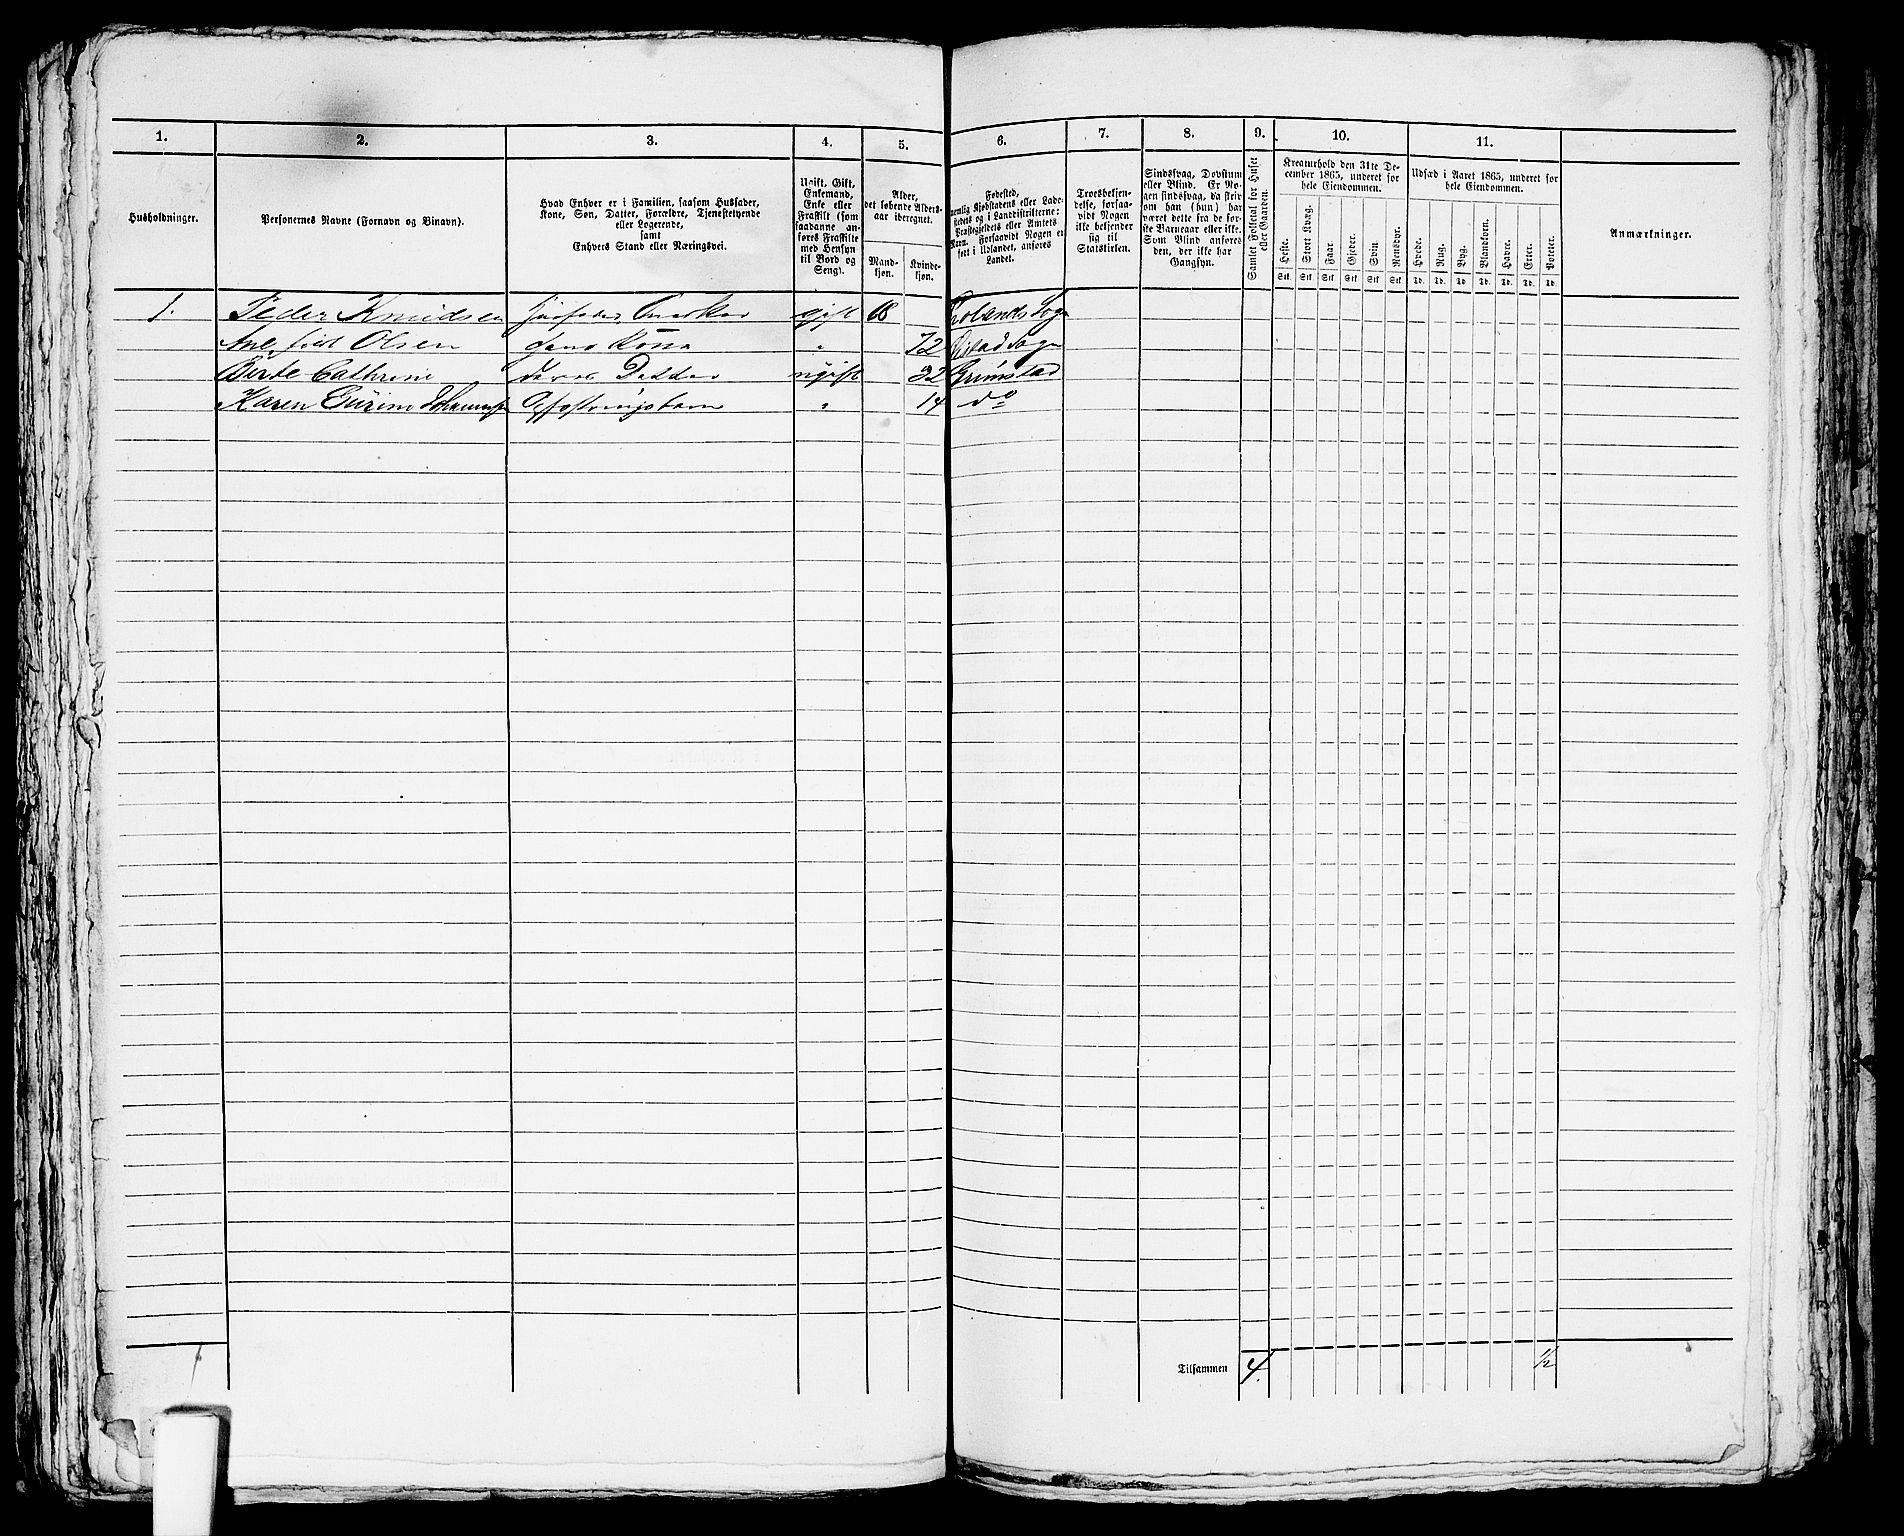 1. 2. 3. 4. 5. 6. 7. 8. 9. 10. 11.
Husholdninger.
Personernes Navne (Fornavn og Binavn).
Hvad Enhver er i Familien, saasom Husfader,
Kone, Søn, Datter, Forældre, Tjenestetyende
eller Logerende,
samt
Enhvers Stand eller Næringsvei.
Ugift, Gift,
Enkemand,
Enke eller
Fraskilt (som
saadanne an-
føres Fraskilte
med Hensyn
til Bord og
Seng).
Alder,
det løbende Alders-
aar iberegnet.
Mand-
kjøn.
Kvinde-
kjøn.
Fødested,
nemlig Kjøbstadens eller Lade-
stedets og i Landdistrikterne:
Præstegjeldets eller Amtets
Navn. Forsaavidt Nogen er
født i Udlandet, anføres
Landet.
Troesbekjen-
delse, forsaa-
vidt Nogen
ikke bekjender
sig til
Statskirken.
Sindssvag, Døvstum
eller Blind. Er No-
gen sindssvag, da skriv
om han (hun) har
været dette fra de før-
ste Barneaar eller ikke.
Som Blind anføres
den, der ikke har
Gangsyn.
Samlet Folketal for Huset
eller Gaarden.
Kreaturhold den 31te De-
cember 1865, underet for
hele Eiendommen.
Heste. Stort Kvæg. Faar. Gjeder. Svin. Rensdyr.
Stk. Stk. Stk. Stk. Stk. Stk.
Udsæd i Aaret 1865, underet for
hele Eiendommen.
Hvede. Rug. Byg. Blandkorn. Havre. Erter. Poteter.
Td. Td. Td. Td. Td. Td. Td.
Anmærkninger.
1. Peder Knudsen Huusfader gift 68 Sogn
Ane Olsen hans Kone " 72 Sogn
Berte Cathrine deres Datter ugift 32 Grimstad
Karen Gurine Opfostringsbarn " 14 do
Tilsammen 4. 1/2